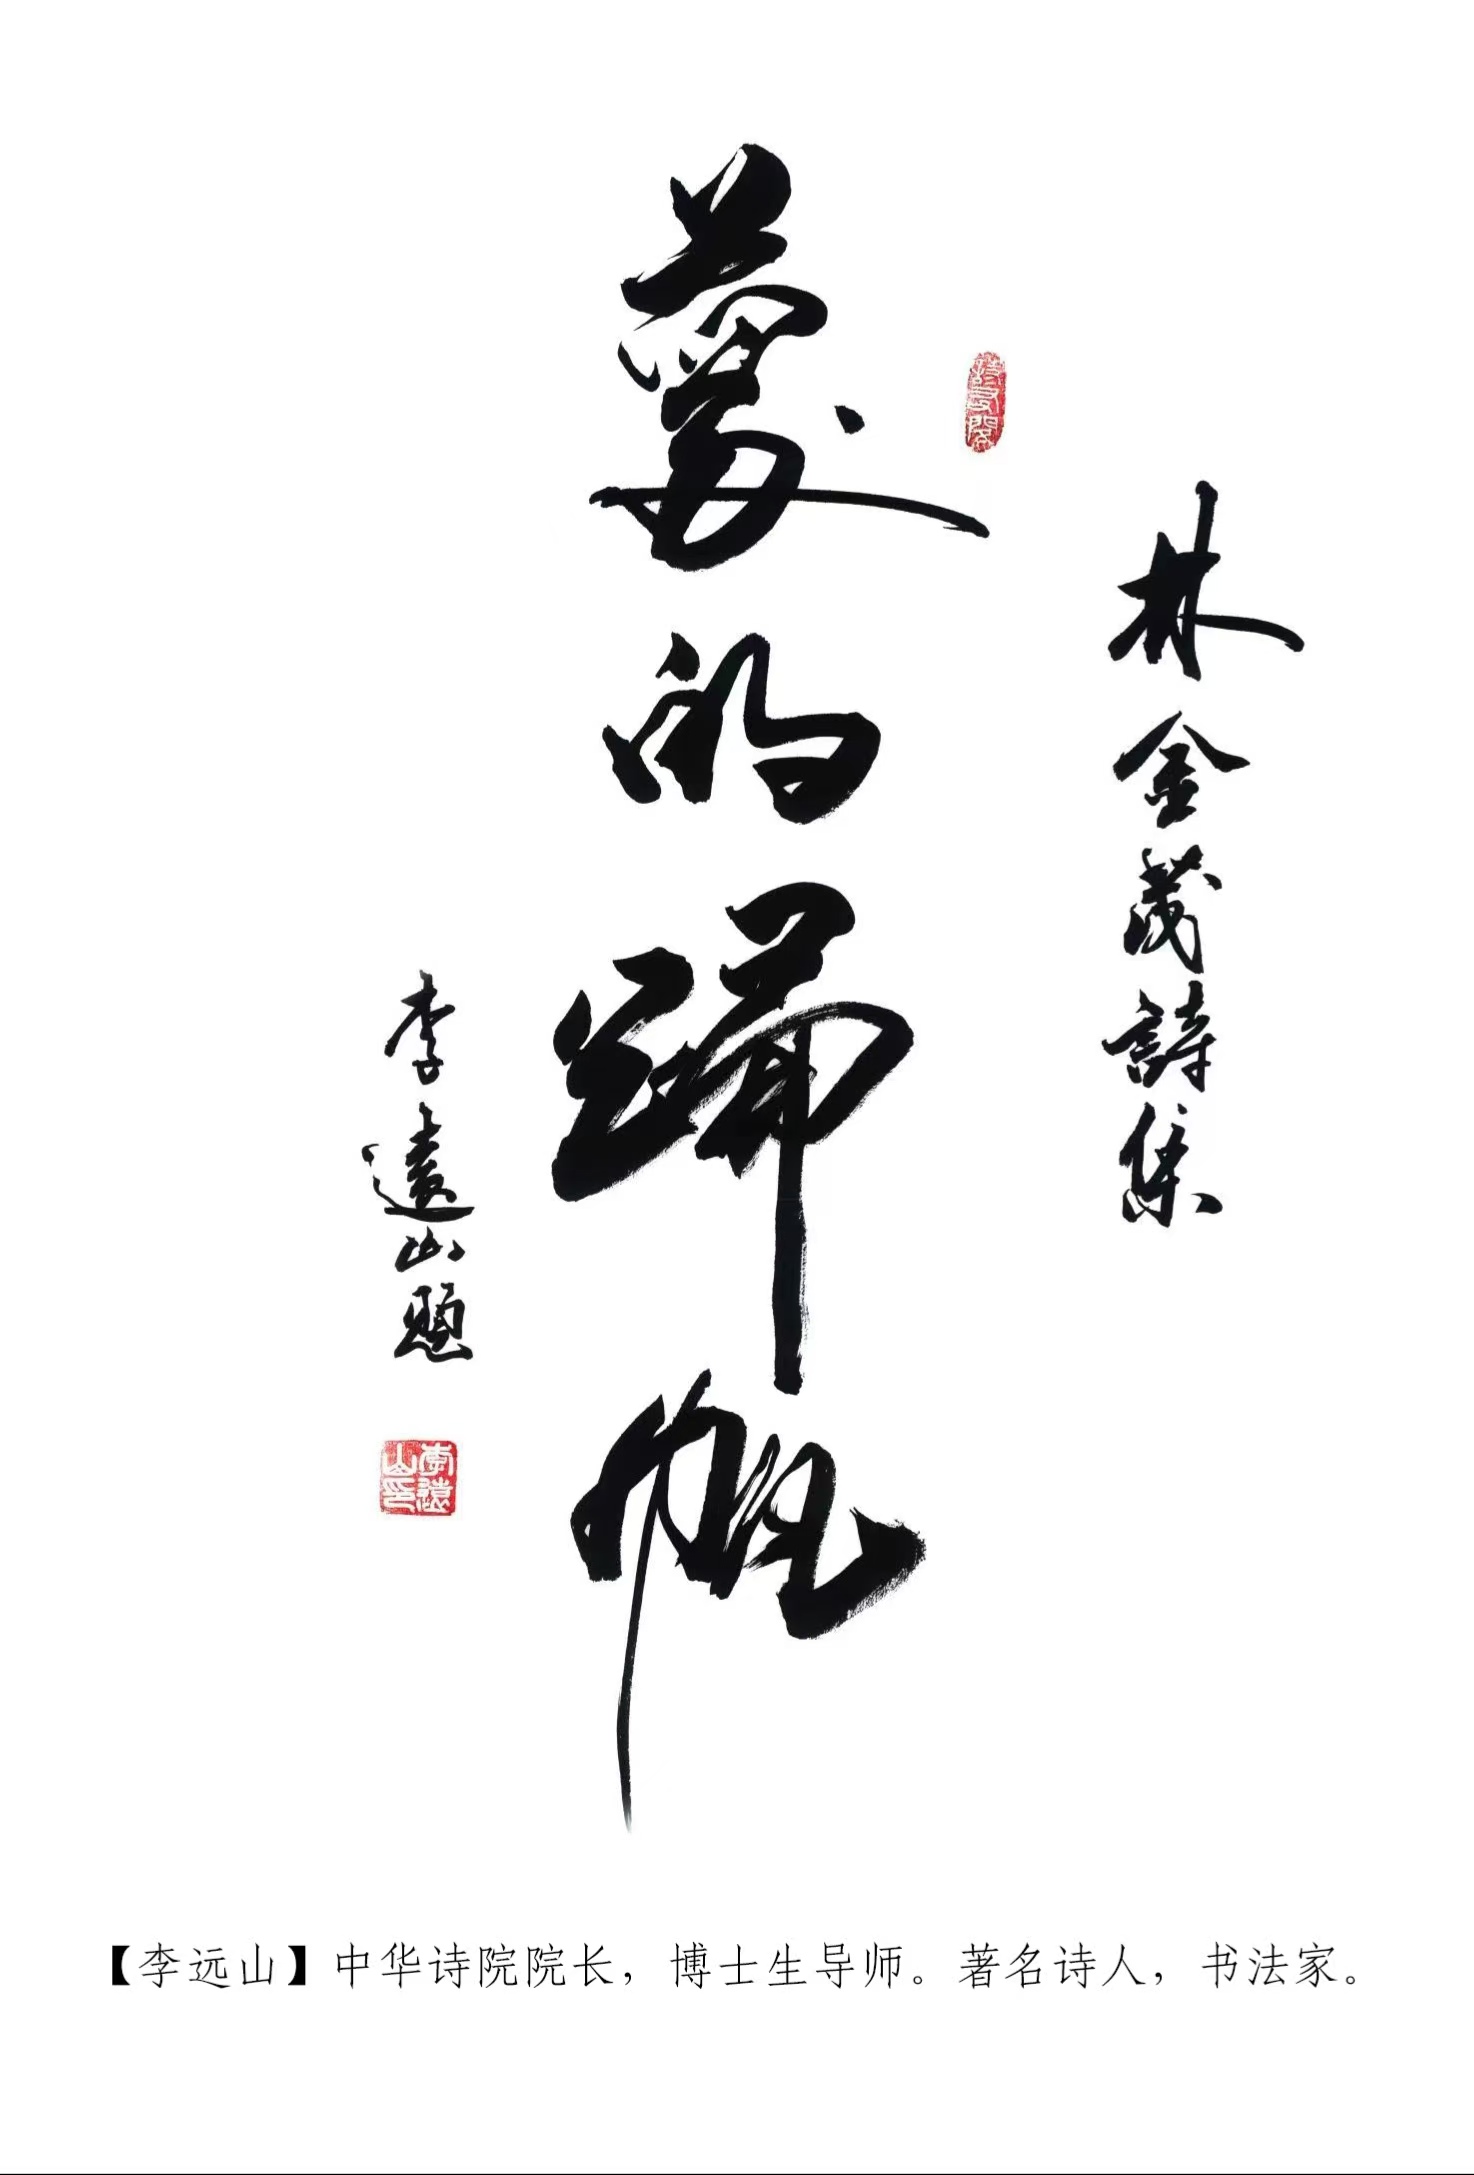 林金茂詩集
夢的歸帆
李遠山題
李遠山印
【李远山】中华诗院院长，博士生导师。著名诗人，书法家。